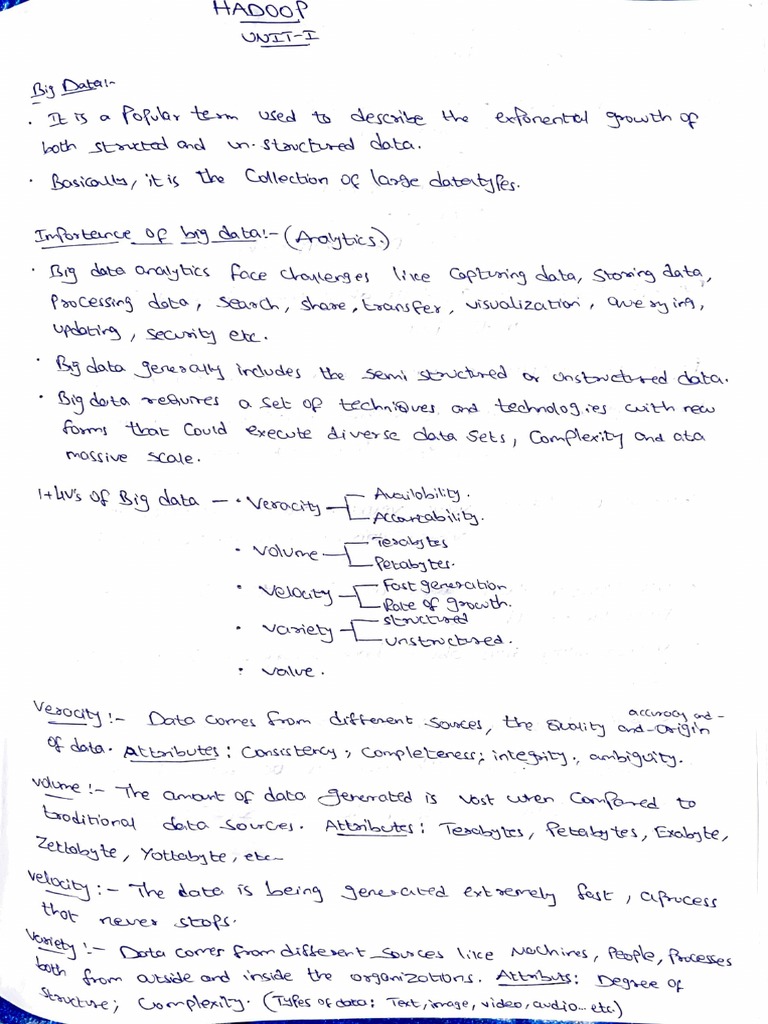 HADOOP
UNIT-I
Big Data:-
. It is a Popular term used to describe the exponential growth of
both structed and un-structured data.
. Basically, it is the Collection of large datatypes.
Importance of big data:- (Analytics.)
. Big data analytics face challenges like Capturing data, storing data,
Processing data, search, share, transfer, visualization, querying,
updating, security etc.
. Big data generally includes the semi structured or unstructured data.
. Big data requires a set of techniques and technologies with new
forms that could execute diverse data sets, Complexity and at a
massive scale.
1+4v's of Big data - . Veracity - Availability.
Accountability.
. Volume - Terabytes
Petabytes.
. Velocity - Fast generation
Rate of growth.
. Variety - structured
unstructured.
. Value.
accuracy and -
Veracity :- Data comes from different sources, the quality and-origin
of data. Attributes : Consistency ; Completeness ; integrity ; ambiguity.
Volume :- The amount of data generated is vast when Compared to
traditional data sources. Attributes : Terabytes, Petabytes, Exabyte,
Zettobyte, Yottabyte, etc-
Velocity :- The data is being generated extremely fast, a process
that never stops.
Variety :- Data comes from different sources like Machines, People, Processes
both from outside and inside the organizations. Attributs : Degree of
structure; Complexity. (Types of data: Text, image, video, audio... etc.)